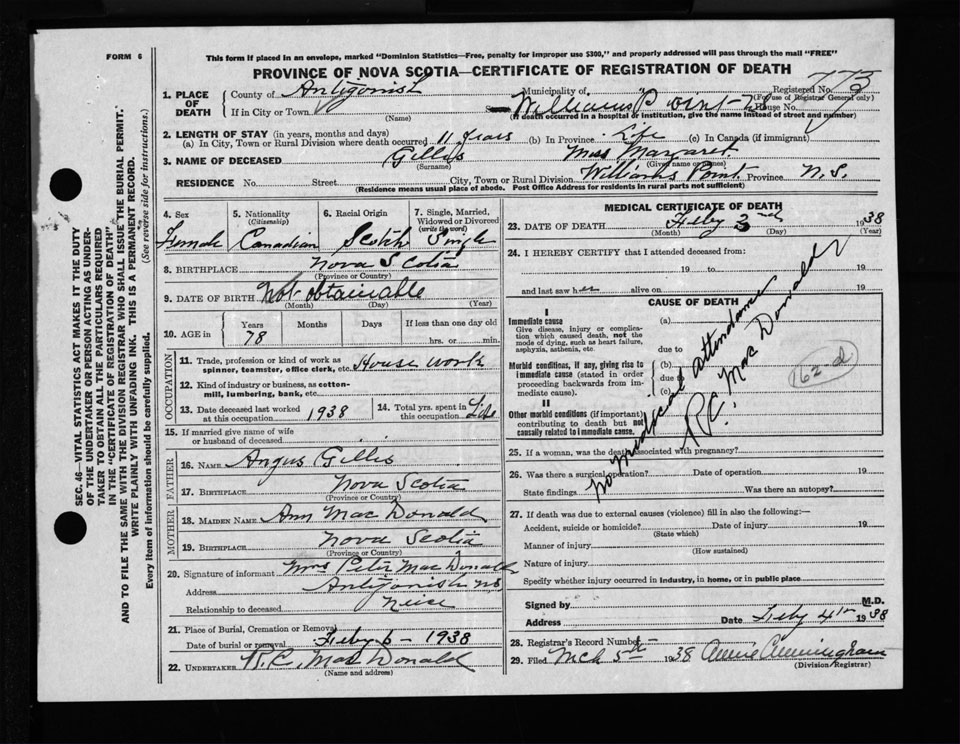 FORM 6
This form if in an envelope, marked "Dominion Statistics—Free, penalty for improper use $300," and properly addressed will pass through the mail "FREE"
PROVINCE OF NOVA SCOTIA—CERTIFICATE OF REGISTRATION OF DEATH
Registered No. 773
(For use of Registrar General only)
1. PLACE OF DEATH
County of Antigonish
Municipality of Williams Point
If in City or Town
(Name)
House No.
(If death occurred in a hospital or institution, give the name instead of street and number)
2. LENGTH OF STAY (in years, months and days)
(a) In City, Town or Rural Division where death occurred 11 years (b) In Province Life (c) In Canada (if immigrant)
3. NAME OF DECEASED Gillis Miss Margaret
(Surname) (Given name or names)
RESIDENCE No. Street City, Town or Rural Division Williams Point Province N.S.
(Residence means usual place of abode. Post Office Address for residents in rural parts not sufficient)
4. Sex Female
5. Nationality (Citizenship) Canadian
6. Racial Origin Scotch
7. Single, Married, Widowed or Divorced (write the word) Single
8. BIRTHPLACE Nova Scotia
(Province or Country)
9. DATE OF BIRTH Not obtainable
(Month) (Day) (Year)
10. AGE in Years Months Days If less than one day old
78 hrs. or min.
OCCUPATION
11. Trade, profession or kind of work as spinner, teamster, office clerk, etc. House work
12. Kind of industry or business, as cotton-mill, lumbering, bank, etc.
13. Date deceased last worked at this occupation 1938
14. Total yrs. spent in this occupation Life
15. If married give name of wife or husband of deceased
FATHER
16. NAME Angus Gillis
17. BIRTHPLACE Nova Scotia
(Province or Country)
MOTHER
18. MAIDEN NAME Ann MacDonald
19. BIRTHPLACE Nova Scotia
(Province or Country)
20. Signature of informant Mrs Peter MacDonald
Address Antigonish NS
Relationship to deceased Neice
21. Place of Burial, Cremation or Removal
Date of burial or removal Feby 6 - 1938
22. UNDERTAKER R.C. MacDonald
(Name and address)
MEDICAL CERTIFICATE OF DEATH
23. DATE OF DEATH Feby 3nd 1938
(Month) (Day) (Year)
24. I HEREBY CERTIFY that I attended deceased from:
19 to 19
and last saw her alive on 19
CAUSE OF DEATH
I
Immediate cause
Give disease, injury or complication which caused death, not the mode of dying, such as heart failure, asphyxia, asthenia, etc.
(a)
due to
Morbid conditions, if any, giving rise to immediate cause (stated in order proceeding backwards from immediate cause).
(b)
due to
(c)
II
Other morbid conditions (if important) contributing to death but not causally related to immediate cause.
No Medical Attendance
R.C. MacDonald
162 d
25. If a woman, was the death associated with pregnancy?
26. Was there a surgical operation? Date of operation 19
State findings Was there an autopsy?
27. If death was due to external causes (violence) fill in also the following:—
Accident, suicide or homicide? Date of injury 19
(State which)
Manner of injury
(How sustained)
Nature of injury
Specify whether injury occurred in industry, in home, or in public place
Signed by M.D.
Address Date Feby 4th 1938
28. Registrar's Record Number
29. Filed Mch 5th 1938 Annie Cunningham
(Division Registrar)
SEC. 46—VITAL STATISTICS ACT MAKES IT THE DUTY
OF THE UNDERTAKER OR PERSON ACTING AS UNDER-
TAKER TO OBTAIN ALL THE PARTICULARS REQUIRED
IN THE "CERTIFICATE OF REGISTRATION OF DEATH"
AND TO FILE THE SAME WITH THE DIVISION REGISTRAR WHO SHALL ISSUE THE BURIAL PERMIT.
WRITE PLAINLY WITH UNFADING INK. THIS IS A PERMANENT RECORD.
Every item of information should be carefully supplied. (See reverse side for instructions.)